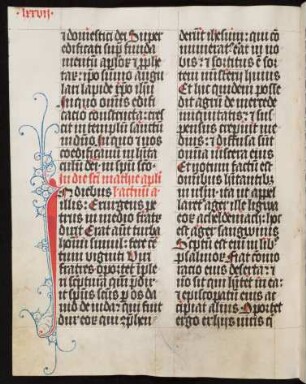 ·lxxvij·
⁊ domestici dei Super
edificati supra funda
mentum apostolorum ⁊ prophe
tarum: ipso summo angu
lari lapide xpo ihsu
In quo omnis edifi
cacio constructa: cres
cit in templum sanctum
in domino. In quo ⁊ vos
coedificamini in habita
culum dei: in spiritu sancto
In die sci mathie apli
In diebus lectio actuum a
illis: Exurgens pe
trus in medio fratrum
dixit Erat autem turba
hominum simul: fere centum
viginti Viri
fratres oportet impleri
scripturam quam predixit
spiritus sanctus per os da
uid de iuda: qui fuit
dux eorum qui comprehen
derunt ihesum: qui con
numeratus erat in no
bis: ⁊ sortitus est sor
tem ministerij huius
Et hic quidem posse
dit agrum de mercede
iniquitatis: ⁊ sus
pensus crepuit medi
us: ⁊ diffusa sunt
omnia viscera eius
Et notum factum est
omnibus habitantibus
ierusalem: ita ut appel
laretur ager ille lingua
eorum acheldemach: hoc
est ager sangwinis
Scriptum est enim in libro
psalmorum Fiat commo
racio eius deserta: ⁊
non sit qui habitet in ea:
⁊ episcopatum eius ac
cipiat alius Oportet
ergo ex hijs viris qui